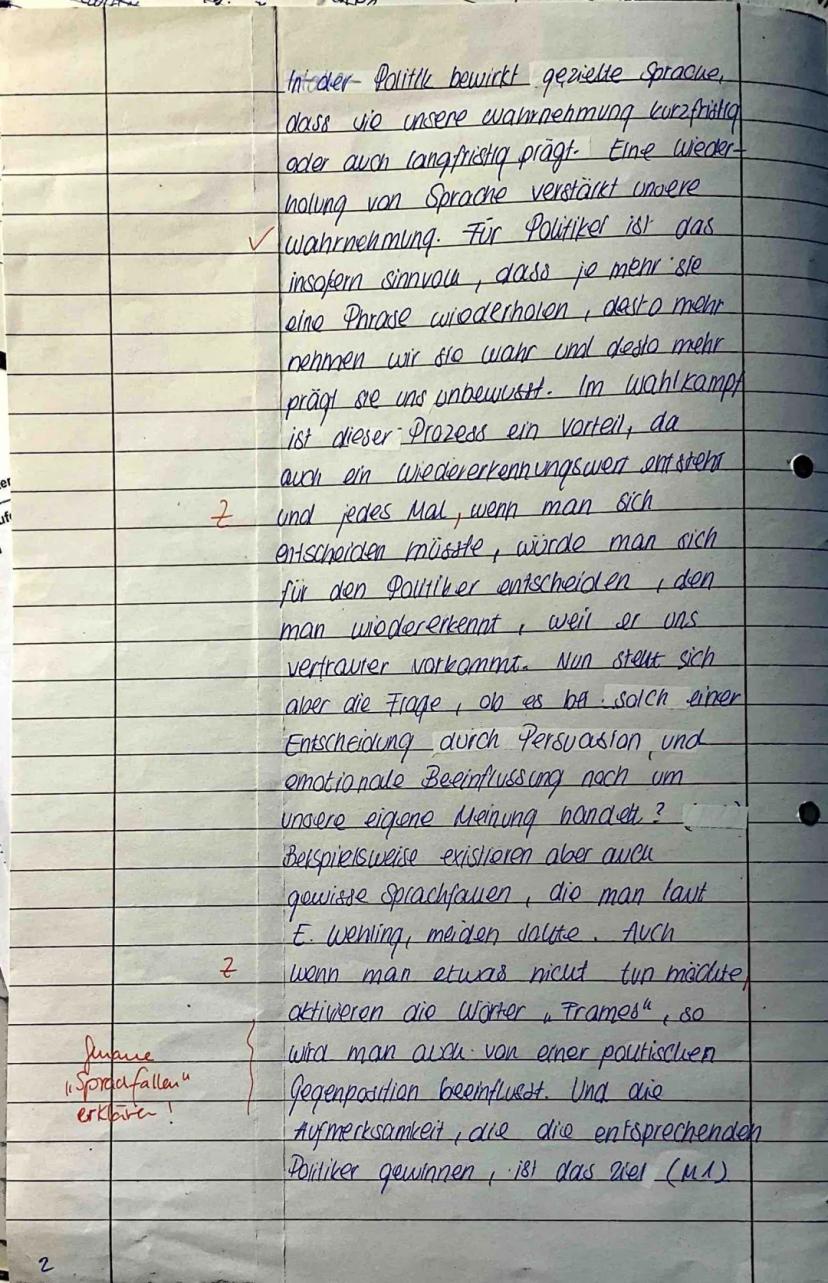 In der Politik bewirkt gezielte Sprache,
dass sie unsere Wahrnehmung kurzfristig
oder auch langfristig prägt. Eine Wieder-
holung von Sprache verstärkt unsere
✓ Wahrnehmung. Für Politiker ist das
insofern sinnvoll, dass je mehr sie
eine Phrase wiederholen, desto mehr
nehmen wir sie wahr und desto mehr
prägt sie uns unbewusst. Im Wahlkampf
ist dieser Prozess ein Vorteil, da
auch ein Wiedererkennungswert entsteht
Z und jedes Mal, wenn man sich
entscheiden müsste, würde man sich
für den Politiker entscheiden, den
man wiedererkennt, weil er uns
vertrauter vorkommt. Nun stellt sich
aber die Frage, ob es bei solch einer
Entscheidung durch Persuasion und
emotionale Beeinflussung noch um
unsere eigene Meinung handelt?
Beispielsweise existieren aber auch
gewisse Sprachfallen, die man laut
E. Wehling, meiden sollte. Auch
Z wenn man etwas nicht tun möchte,
aktivieren die Wörter „Frames“, so
wird man auch von einer politischen
Gegenposition beeinflusst. Und die
Aufmerksamkeit, die die entsprechenden
Politiker gewinnen, ist das Ziel (M1)
„Sprachfallen“
erklären!
2